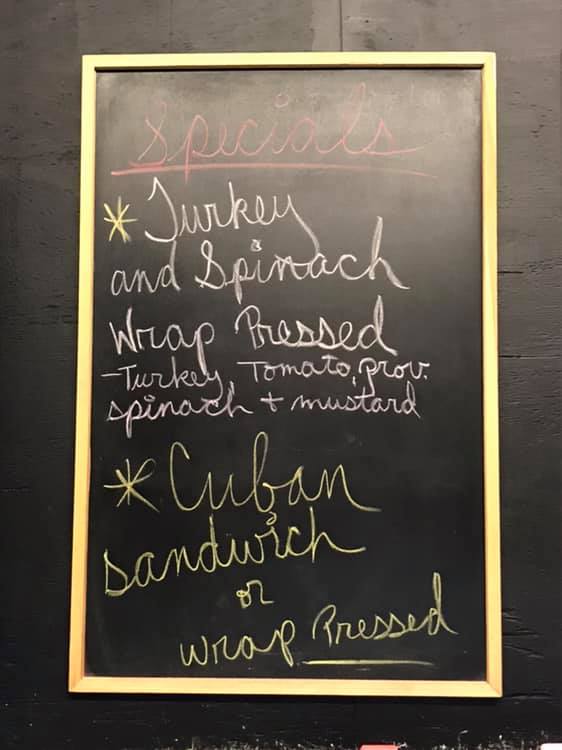 Specials
* Turkey
and Spinach
Wrap Pressed
-Turkey, Tomato, prov.
spinach + mustard
* Cuban
sandwich
or
wrap Pressed